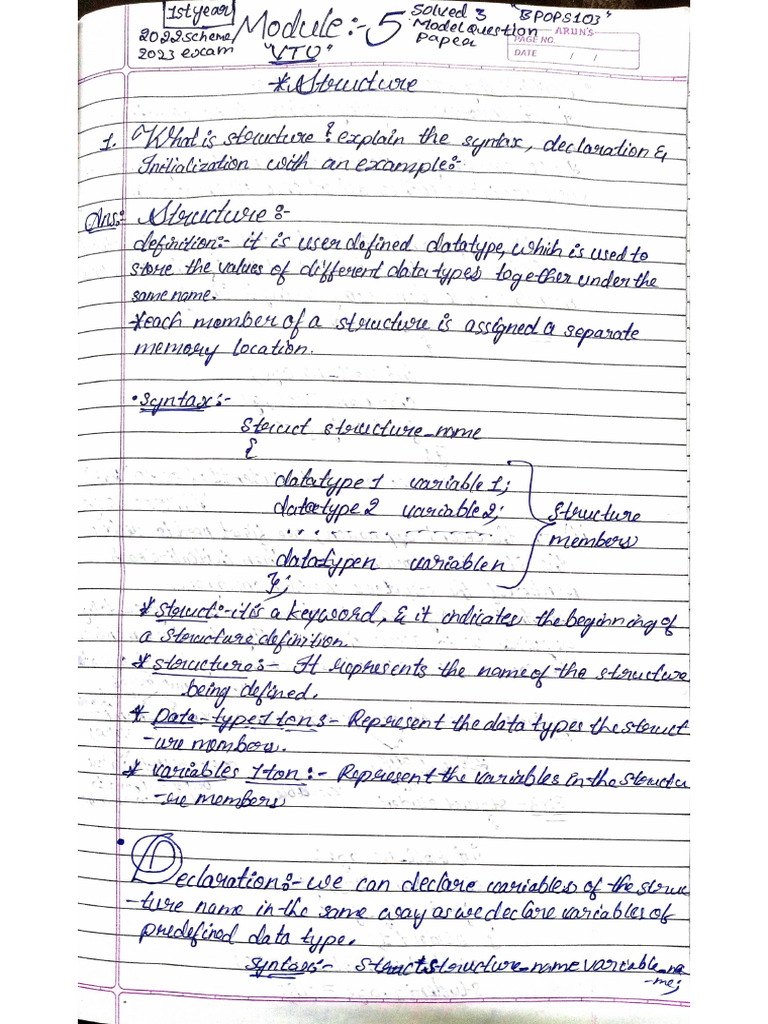 1st year
Module:- 5
Solved 3 "BPOPS103"
Model Question
Paper
2022 scheme
2023 exam
"VTU"
ARUN'S
PAGE NO.
DATE / /
*Structure
1. What is structure & explain the syntax, declaration &
Initialization with an example:-
Ans: Structure:-
definition:- it is user defined datatype, which is used to
store the values of different data types together under the
same name.
*each member of a structure is assigned a separate
memory location.
• syntax:-
Struct structure_name
{
datatype 1 variable 1;
datatype 2 variable 2;
structure
members
datatypen variablen
};
* Struct:- it is a keyword, & it indicates the beginning of
a structure definition.
* structure:- It represents the name of the structure
being defined.
* Data-type 1 to n:- Represent the data types the struct
-ure members.
* variables 1 to n:- Represent the variables in the structu
-re members
• Declaration:- we can declare variables of the struc
-ture name in the same way as we declare variables of
predefined data type.
syntax:- struct structure_name variable_na
-me;